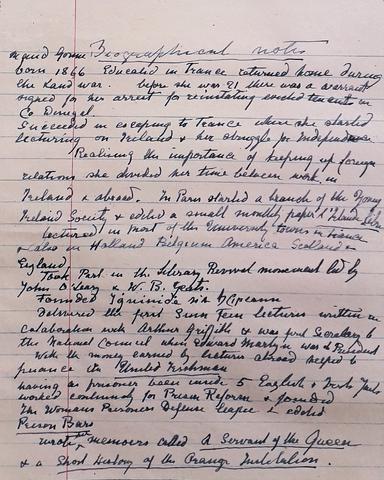 Maud Gonne Biographical notes
born 1866 Educated in France returned home during
the Land war. before she was 21 there was a warrant
signed for her arrest for reinstating evicted tenants in
Co Donegal.
Succeeded in escaping to France where she started
lecturing on Ireland & her struggle for Independence
Realising the importance of keeping up foreign
relations she divided her time between work in
Ireland & abroad. In Paris started a branch of the Young
Ireland Society & edited a small monthly paper
Lectured in most of the University towns in France
& also in Holland Belgium America Scotland &
England
Took Part in the Literary Revival movement led by
John O'Leary & W. B. Yeats.
Founded Inghinidhe na hEireann
Delivered the first Sinn Fein lectures written in
colaboration with Arthur Griffith & was first Secretary to
the National Council when Edward Martyn was President
With the money earned by lectures abroad helped to
finance the United Irishman
having as prisoner been inside 5 English & Irish Jails
worked continuously for Prison Reform & founded
The Womans Prisoners Defense league & edited
Prison Bars
wrote her memoirs called A Servant of the Queen
& a Short History of the Orange Institution.